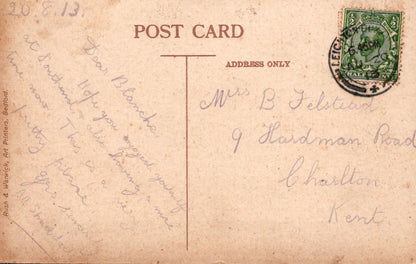 20.8.13
POST CARD
ADDRESS ONLY
Dear Blanche
Hope you
enjoyed yourself
at
having a nice
time now. This is a
pretty place
Mrs B Felstead
9 Hardman Road
Charlton
Kent.
Rush & Warwick, Art Printers, Bedford.